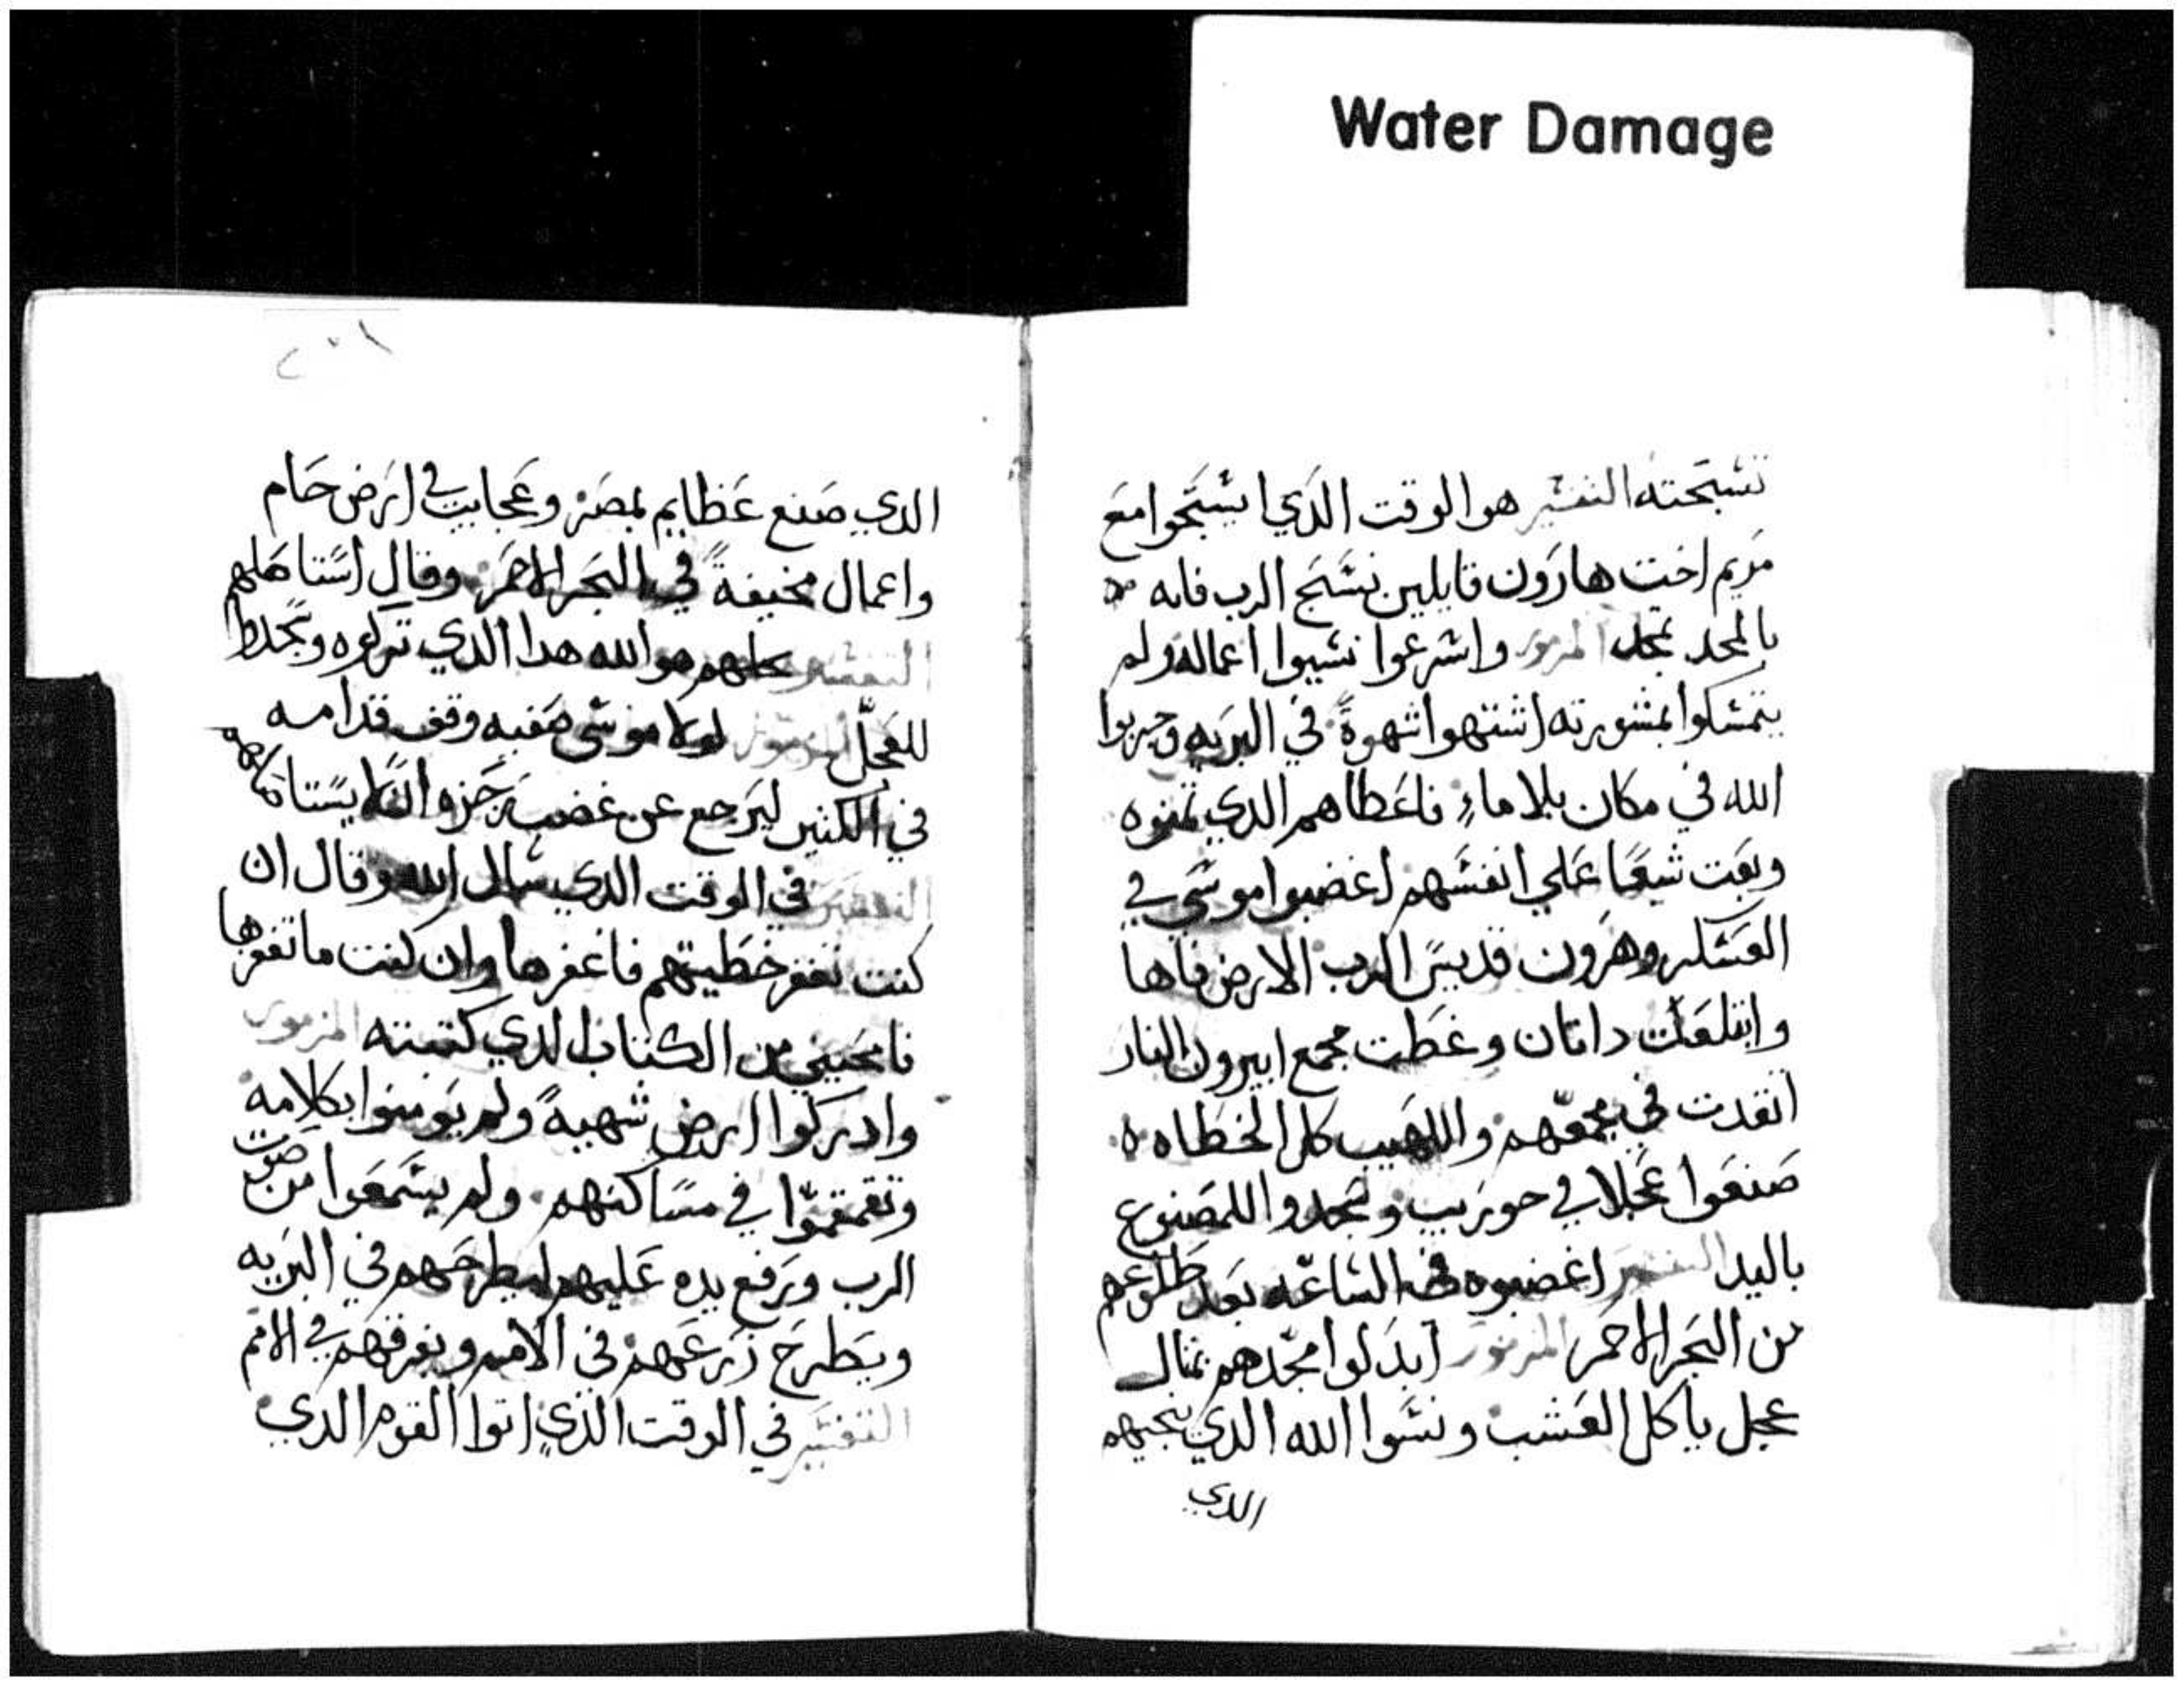 Water Damage
تسبحته التفسير هو الوقت الذي اسبحوا مع
مريم اخت هارون قايلين نسبح الرب فانه
بالمجد تمجد المزمور واسرعوا نسيوا اعماله ولم
يتمسكوا بمشورته اشتهوا شهوةً في البريه وجربوا
الله في مكان بلا ماءٍ فاعطاهم الدي تمنوه
وبعت شبعًا علي انفسهم اغضبوا موسي في
العسكر وهرون قديس الرب الارض فاها
وابتلعت داتان وغطت مجمع ابيرون النار
اتقدت في مجمعهم واللهيب كل الخطاه
صنعوا عجلا في حوريب وسجدوا للمصنوع
باليد التفسير اغضبوه في الساعه بعد طلوعهم
من البحر الاحمر المزمور ابدلوا مجدهم بمثال
عجل ياكل العشب ونسوا الله الدي نجيهم
الدي
٢٠١
الدي صنع عظايم بمصر وعجايب في ارض حام
واعمال مخيفةً في البحر الاحمر وقال استاصلهم
التفسير كلهم هو الله هدا الدي تركوه وسجدوا
للعجل المزمور لولا موسي صفيه وقف قدامه
في الكسر ليرجع عن غضب رجزه ليلا يستاصلهم
التفسير في الوقت الدي سال الله وقال ان
كنت تغفر خطيتهم فاغفرها وان كنت ما تغفرها
فامحيني من الكتاب الدي كتبته المزمور
وادركوا ارض شهيةً ولم يومنوا بكلامه
وتقمقموا في مساكنهم ولم يسمعوا من صوت
الرب ورفع يده عليهم ليطرحهم في البريه
ويطرح زرعهم في الامم ويفرقهم في الامم
التفسير في الوقت الذي اتوا القوم الدي